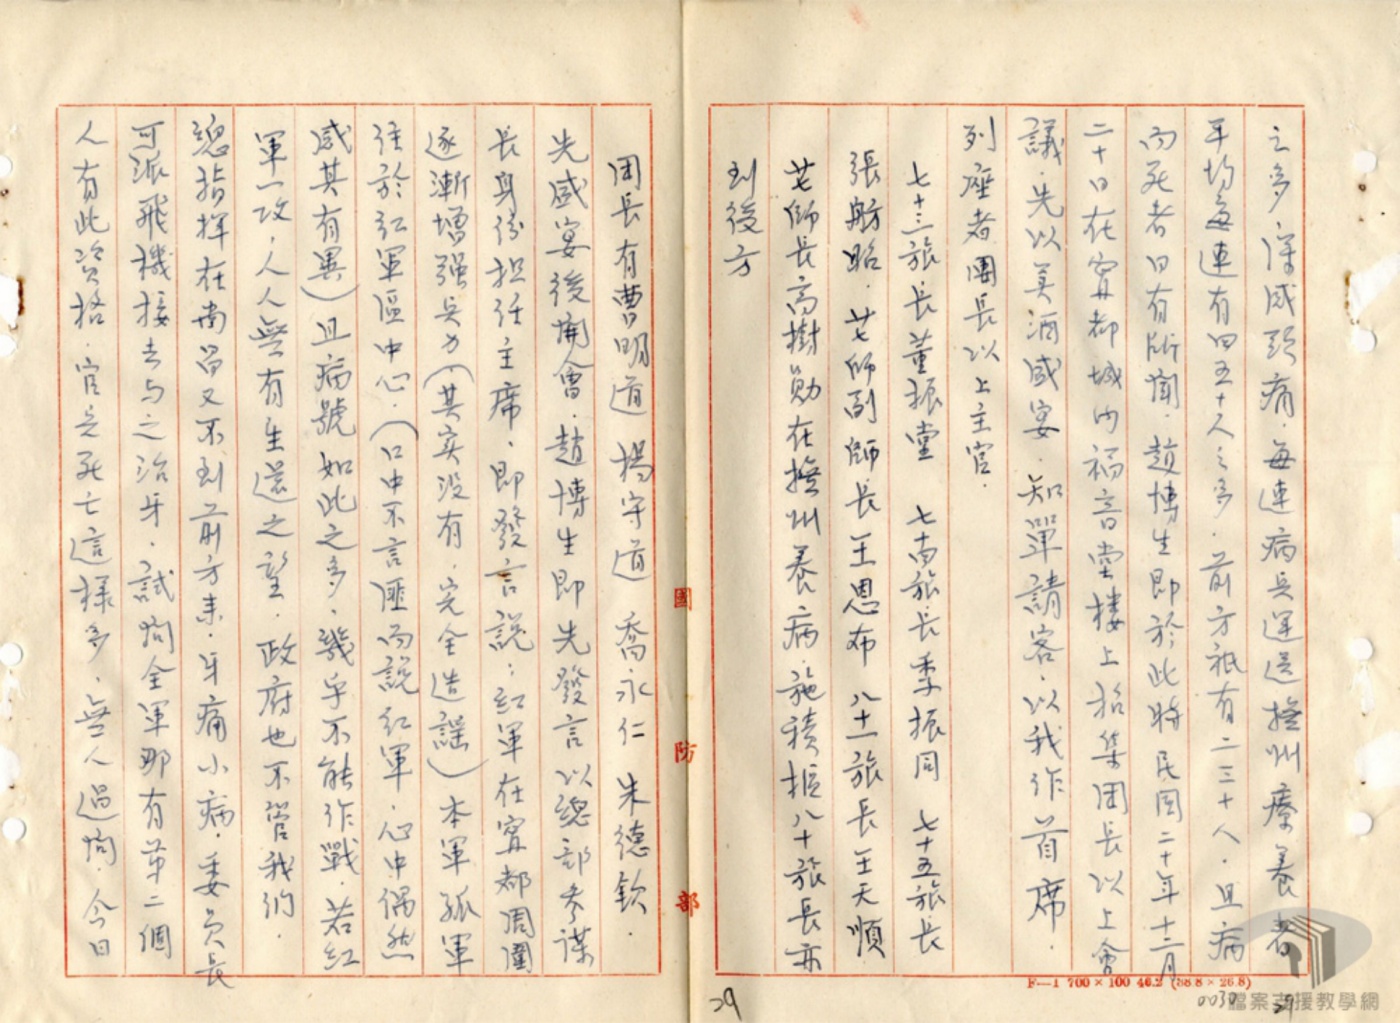 之多，深感頭痛，每連病兵運送撫州療養者
平均每連有四五十人之多，前方祇有二三十人，且病
而死者日有所聞，趙博生即於此時民國二十年十二月
二十日在宜都城內福音堂樓上招集团長以上會
議，先以美酒咸宴，知單請客，以我作首席，
列座者團長以上主官，
七十三旅長董振堂 七十四旅長季振同 七十五旅長
張舫昭，廿七師副師長王恩布 八十一旅長王天順
廿七師長高樹勛在撫州養病，施積樞八十旅長亦
到後方
团長有曹明道 楊守道 喬永仁 朱德欽，
先咸宴後開會，趙博生即先發言以總部參謀
長身份担任主席，即發言說：紅軍在宜都周圍
逐漸增強兵力（其实没有，完全造謠）本軍孤軍
住於紅軍區中心，（口中不言匪而說紅軍，心中偶然
感其有異）且病號如此之多，幾乎不能作戰，若紅
軍一攻，人人無有生還之望，政府也不管我們，
總指揮在南昌又不到前方來，牙痛小病，委員長
可派飛機接去与之治牙，試問全軍那有第二個
人有此資格，官兵死亡這樣多，無人過問，今日
國防部
F—1 700×100 46.2 (38.8×26.8)
29
0030
29
檔案支援教學網